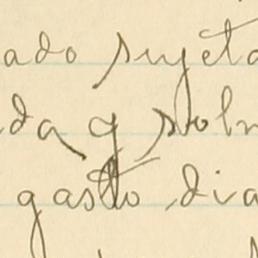 ado sujeta
da q solm
gasto dia